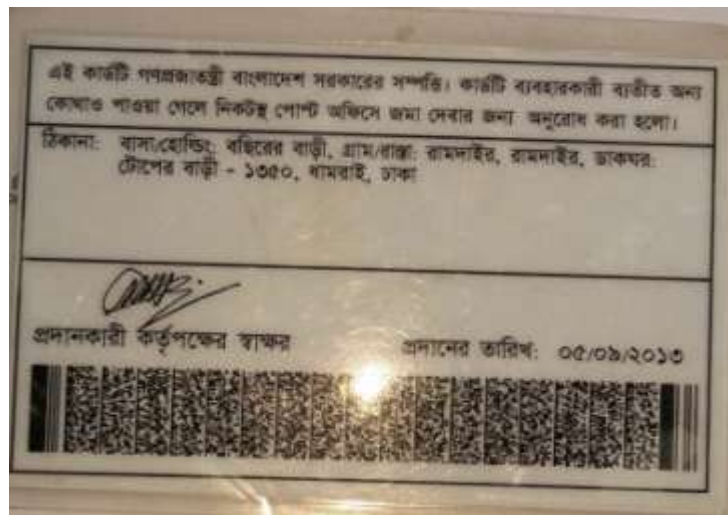 এই কার্ডটি গণপ্রজাতন্ত্রী বাংলাদেশ সরকারের সম্পত্তি। কার্ডটি ব্যবহারকারী ব্যতীত অন্য
কোথাও পাওয়া গেলে নিকটস্থ পোস্ট অফিসে জমা দেবার জন্য অনুরোধ করা হলো।
ঠিকানা: বাসা/হোল্ডিং: বছিরের বাড়ী, গ্রাম/রাস্তা: রামদাইর, রামদাইর, ডাকঘর:
টোপের বাড়ী - ১৩৫০, ধামরাই, ঢাকা
প্রদানকারী কর্তৃপক্ষের স্বাক্ষর
প্রদানের তারিখ: ০৫/০৯/২০১৩